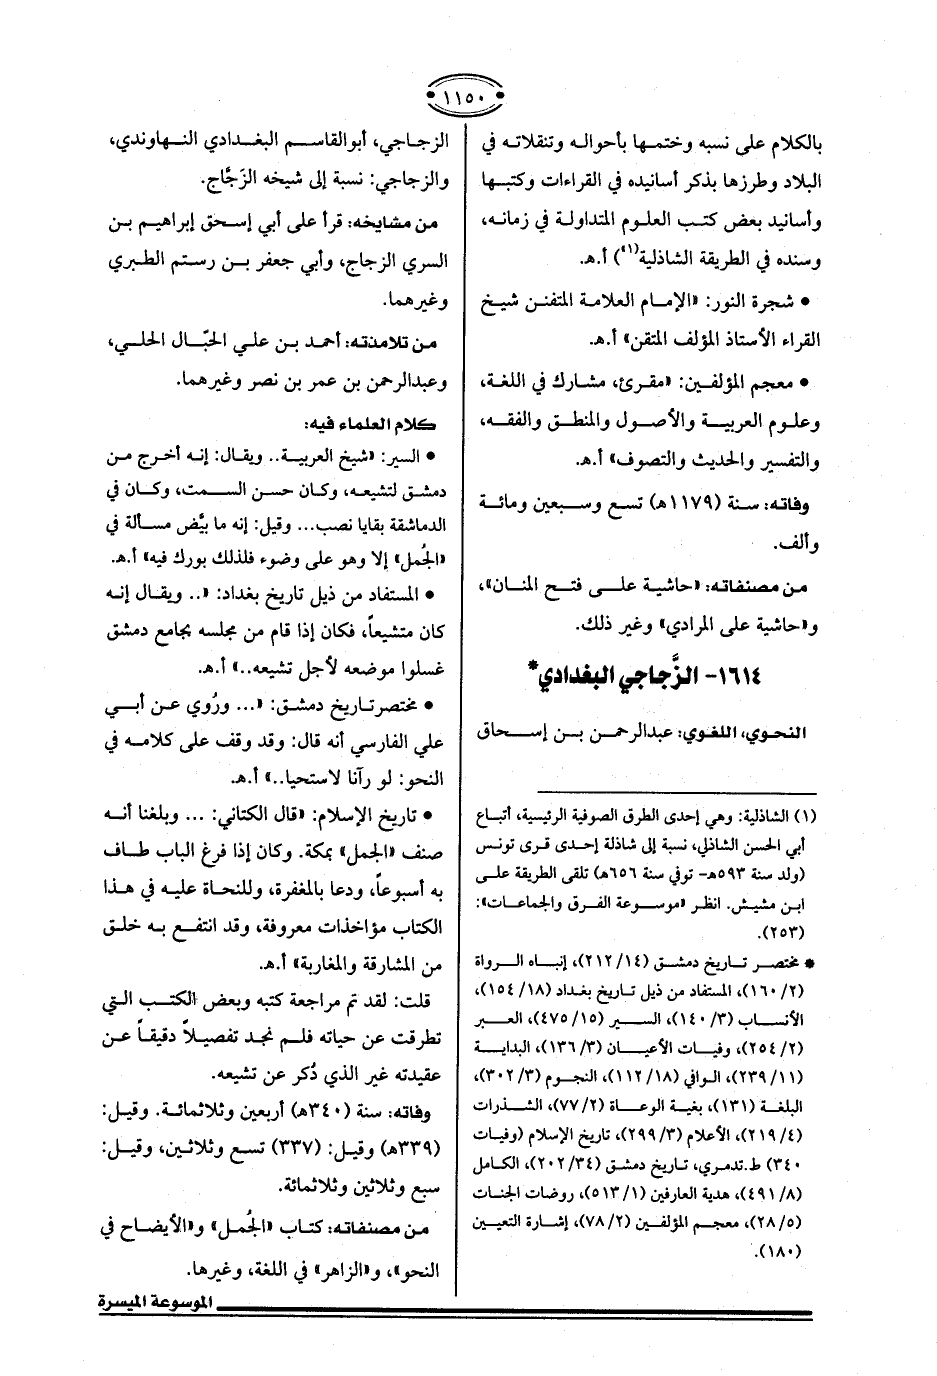 ١١٥٠
بالكلام على نسبه وختمها بأحواله وتنقلاته في
البلاد وطرزها بذكر أسانيده في القراءات وكتبها
وأسانيد بعض كتب العلوم المتداولة في زمانه،
وسنده في الطريقة الشاذلية(١)» أ.هـ.
• شجرة النور: «الإمام العلامة المتفنن شيخ
القراء الأستاذ المؤلف المتقن» أ.هـ.
• معجم المؤلفين: «مقرئ، مشارك في اللغة،
وعلوم العربية والأصول والمنطق والفقه،
والتفسير والحديث والتصوف» أ.هـ.
وفاته: سنة (١١٧٩هـ) تسع وسبعين ومائة
وألف.
من مصنفاته: «حاشية على فتح المنان»،
و«حاشية على المرادي» وغير ذلك.
١٦١٤- الزَّجاجي البغدادي*
النحوي، اللغوي: عبدالرحمن بن إسحاق
(١) الشاذلية: وهي إحدى الطرق الصوفية الرئيسية، أتباع
أبي الحسن الشاذلي، نسبة إلى شاذلة إحدى قرى تونس
(ولد سنة ٥٩٣هـ- توفي سنة ٦٥٦هـ) تلقى الطريقة على
ابن مشيش. انظر «موسوعة الفرق والجماعات»:
(٢٥٣).
* مختصر تاريخ دمشق (٢١٢/١٤)، إنباه الرواة
(١٦٠/٢)، المستفاد من ذيل تاريخ بغداد (١٥٤/١٨)،
الأنساب (١٤٠/٣)، السير (٤٧٥/١٥)، العبر
(٢٥٤/٢)، وفيات الأعيان (١٣٦/٣)، البداية
(٢٣٩/١١)، الوافي (١١٢/١٨)، النجوم (٣٠٢/٣)،
البلغة (١٣١)، بغية الوعاة (٧٧/٢)، الشذرات
(٢١٩/٤)، الأعلام (٢٩٩/٣)، تاريخ الإسلام (وفيات
٣٤٠) ط.تدمري، تاريخ دمشق (٢٠٢/٣٤)، الكامل
(٤٩١/٨)، هدية العارفين (٥١٣/١)، روضات الجنات
(٢٨/٥)، معجم المؤلفين (٧٨/٢)، إشارة التعيين
(١٨٠).
الزجاجي، أبوالقاسم البغدادي النهاوندي،
والزجاجي: نسبة إلى شيخه الزَجَّاج.
من مشايخه: قرأ على أبي إسحق إبراهيم بن
السري الزجاج، وأبي جعفر بن رستم الطبري
وغيرهما.
من تلامذته: أحمد بن علي الحبّال الحلبي،
وعبدالرحمن بن عمر بن نصر وغيرهما.
كلام العلماء فيه:
• السير: «شيخ العربية.. ويقال: إنه أخرج من
دمشق لتشيعه، وكان حسن السمت، وكان في
الدماشقة بقايا نصب... وقيل: إنه ما بيَّض مسألة في
«الجُمل» إلا وهو على وضوء فلذلك بورك فيه» أ.هـ.
• المستفاد من ذيل تاريخ بغداد: «.. ويقال إنه
كان متشيعاً، فكان إذا قام من مجلسه بجامع دمشق
غسلوا موضعه لأجل تشيعه..» أ.هـ.
• مختصرتاريخ دمشق: «... ورُوي عن أبي
علي الفارسي أنه قال: وقد وقف على كلامه في
النحو: لو رآنا لاستحيا..» أ.هـ.
• تاريخ الإسلام: «قال الكتاني: ... وبلغنا أنه
صنف «الجمل» بمكة. وكان إذا فرغ الباب طاف
به أسبوعاً، ودعا بالمغفرة، وللنحاة عليه في هذا
الكتاب مؤاخذات معروفة، وقد انتفع به خلق
من المشارقة والمغاربة» أ.هـ.
قلت: لقد تم مراجعة كتبه وبعض الكتب التي
تطرقت عن حياته فلم نجد تفصيلاً دقيقاً عن
عقيدته غير الذي ذُكر عن تشيعه.
وفاته: سنة (٣٤٠هـ) أربعين وثلاثمائة. وقيل:
(٣٣٩هـ) وقيل: (٣٣٧) تسع وثلاثين، وقيل:
سبع وثلاثين وثلاثمائة.
من مصنفاته: كتاب «الجُمل» و«الأيضاح في
النحو»، و«الزاهر» في اللغة، وغيرها.
الموسوعة الميسرة